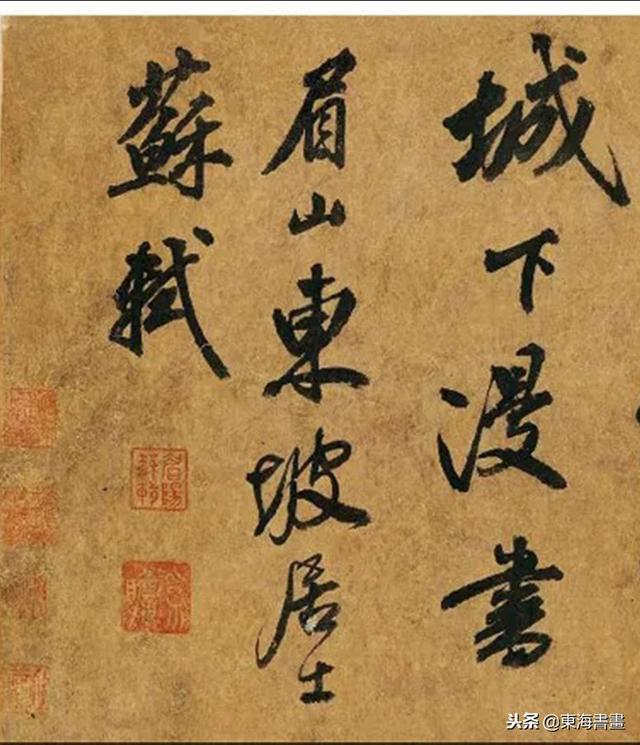 城下漫書
眉山東坡居士
蘇軾
头条 @東海書畫